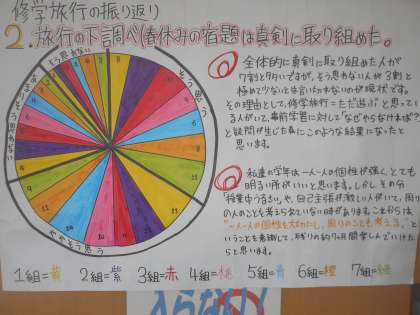 修学旅行の振り返り
2. 旅行の下調べ(春休みの宿題)は真剣に取り組めた。
そう思わない
そう思う
あまりそう思わない
ややそう思う
全体的に真剣に取り組めた人が
7割と多いですが、そう思わない人が3割と
極めて少ないとは言いがたいのが現状です。
その理由として修学旅行=ただ遊ぶと思ってい
る人がいて、事前学習に対して"なぜやらなければ?"
と疑問が生じた為にこのような結果になったと
思います。
私達の学年は一人一人の個性が強く、とても
明るい所がいいと思います。しかしその分
授業中うるさい。や、自己主張が激しい人がいて、周り
の人のことを考えられていない時があります。これからは
"一人一人の個性も大切にし、周りのことも考える。"
ということを意識して、残りの約7ヶ月間学んでいけた
らと思います。
1組=黄 2組=紫 3組=赤 4組=桃 5組=青 6組=橙 7組=緑
入らない